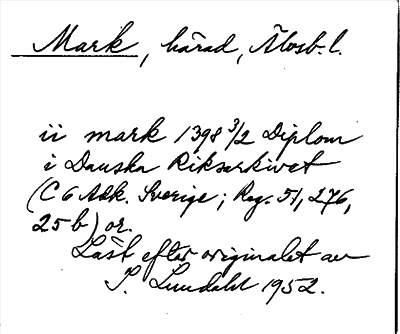 Mark, härad, Älvsb. l.
ii mark 1398 3/2 Diplom
i Danska Riksarkivet
(C 6 Adk. Sverige; Reg. 51, 276,
25 b) or.
Läst efter originalet av
S. Lundahl 1952.